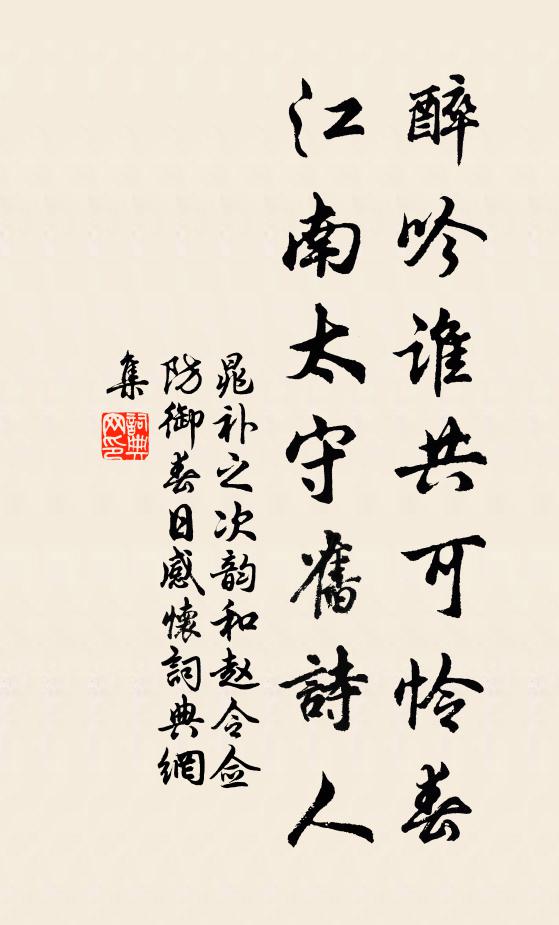 醉吟谁共可怜春
江南太守舊詩人
晁补之次韵和赵令佥
防御春日感懷詞典網
集
詞典网印